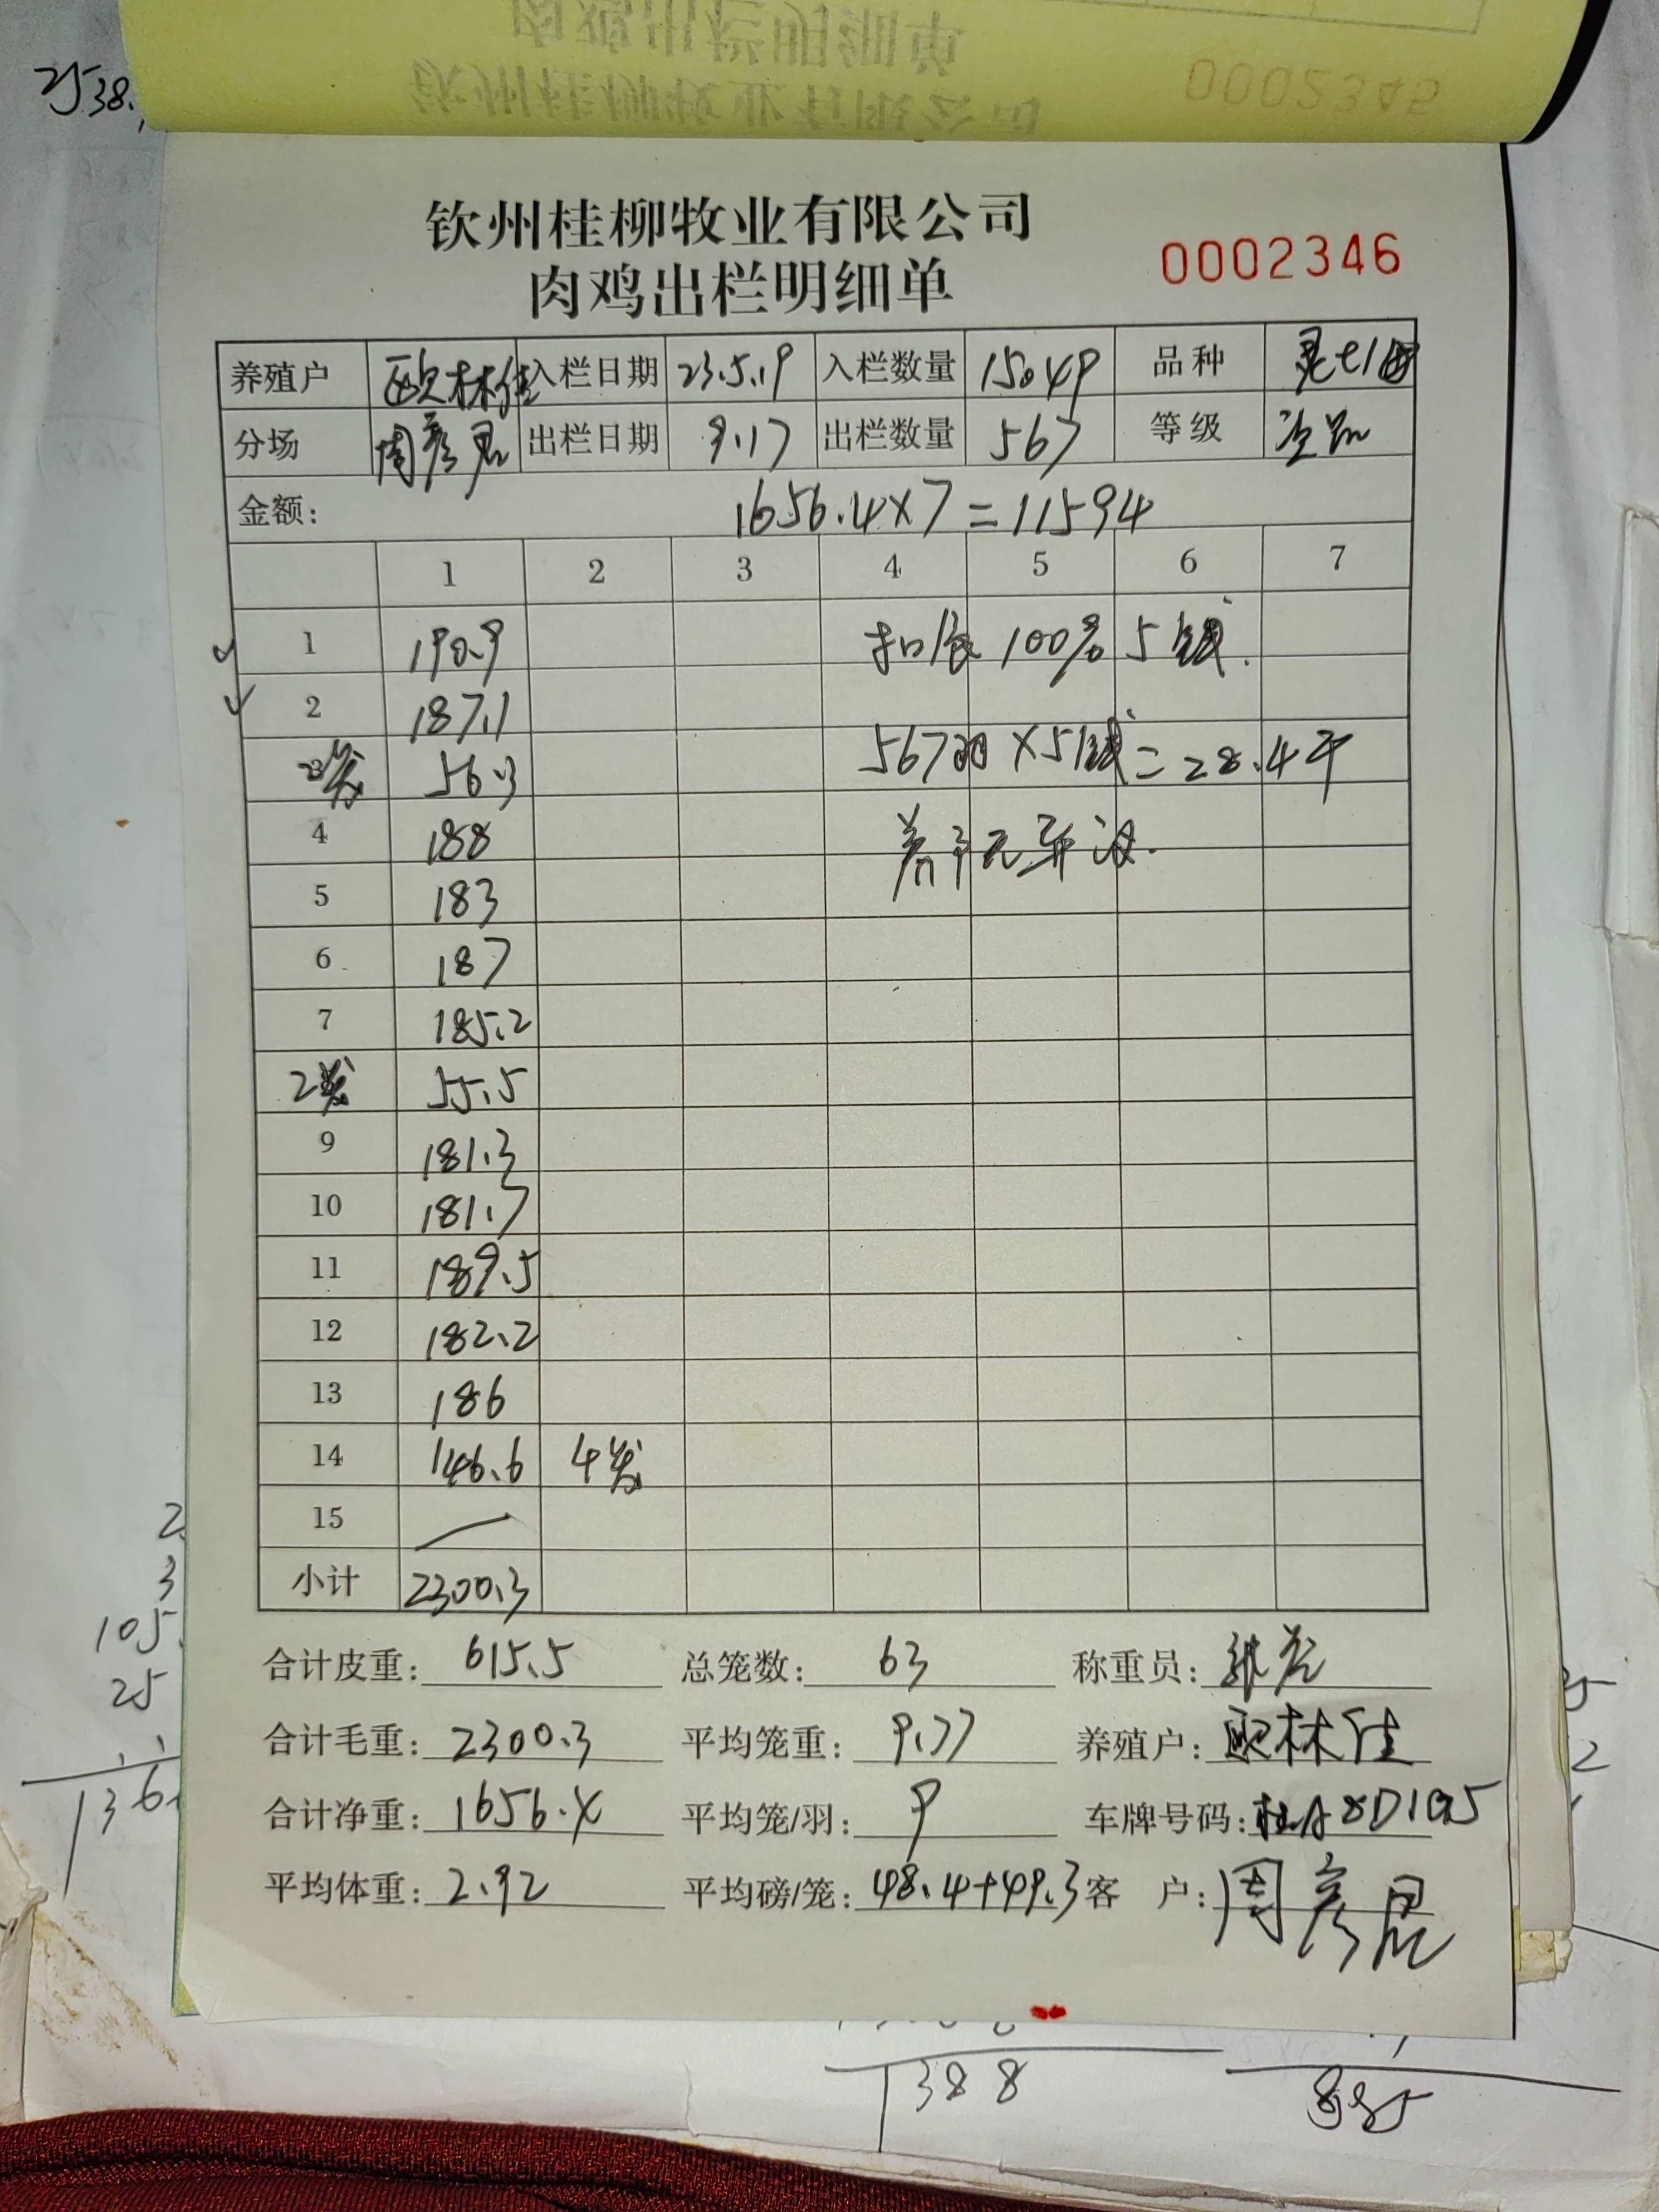 2538.
0002345
钦州桂柳牧业有限公司
肉鸡出栏明细单
0002346
养殖户 欧林佳 入栏日期 23.5.19 入栏数量 15049 品种
分场 周彦昆 出栏日期 9.17 出栏数量 567 等级 次品
金额: 1656.4×7=11594
1 2 3 4 5 6 7
1 190.9 扣 100% 5钱.
2 187.1
56.3 567羽×5钱=28.4斤
4 188
5 183
6 187
7 185.2
2笼 55.5
9 181.3
10 181.7
11 189.5
12 182.2
13 186
14 146.6 4笼
15
小计 2300.3
合计皮重: 615.5 总笼数: 63 称重员:
合计毛重: 2300.3 平均笼重: 9.77 养殖户: 欧林佳
合计净重: 1656.4 平均笼/羽: 9 车牌号码:
平均体重: 2.92 平均磅/笼: 48.4+49.3 客 户: 周彦昆
105
25
136
1388
885